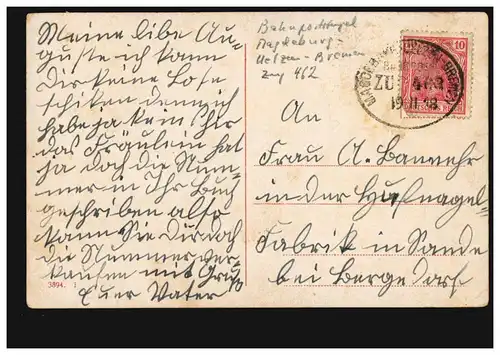 Meine libe Au-
guste ich kann
Dir keine Lose
schiken denn ich
habe ja kein hir
das Fräulein hat
ja doch die Num-
mer in Ihr Buch
geschriben also
kann Sie Dir doch
die Nummer ver-
kaufen mit Gruß
Euer Vater
3894. 1
Bahnpoststempel
Magdeburg-
Uelzen-Bremen
Zug 462
10
BREMEN
Bahnpost
ZUG
19 11 18
An
Frau A. Banwehr
in der Hufnagel-
Fabrik in Sande
bei Bergedorf